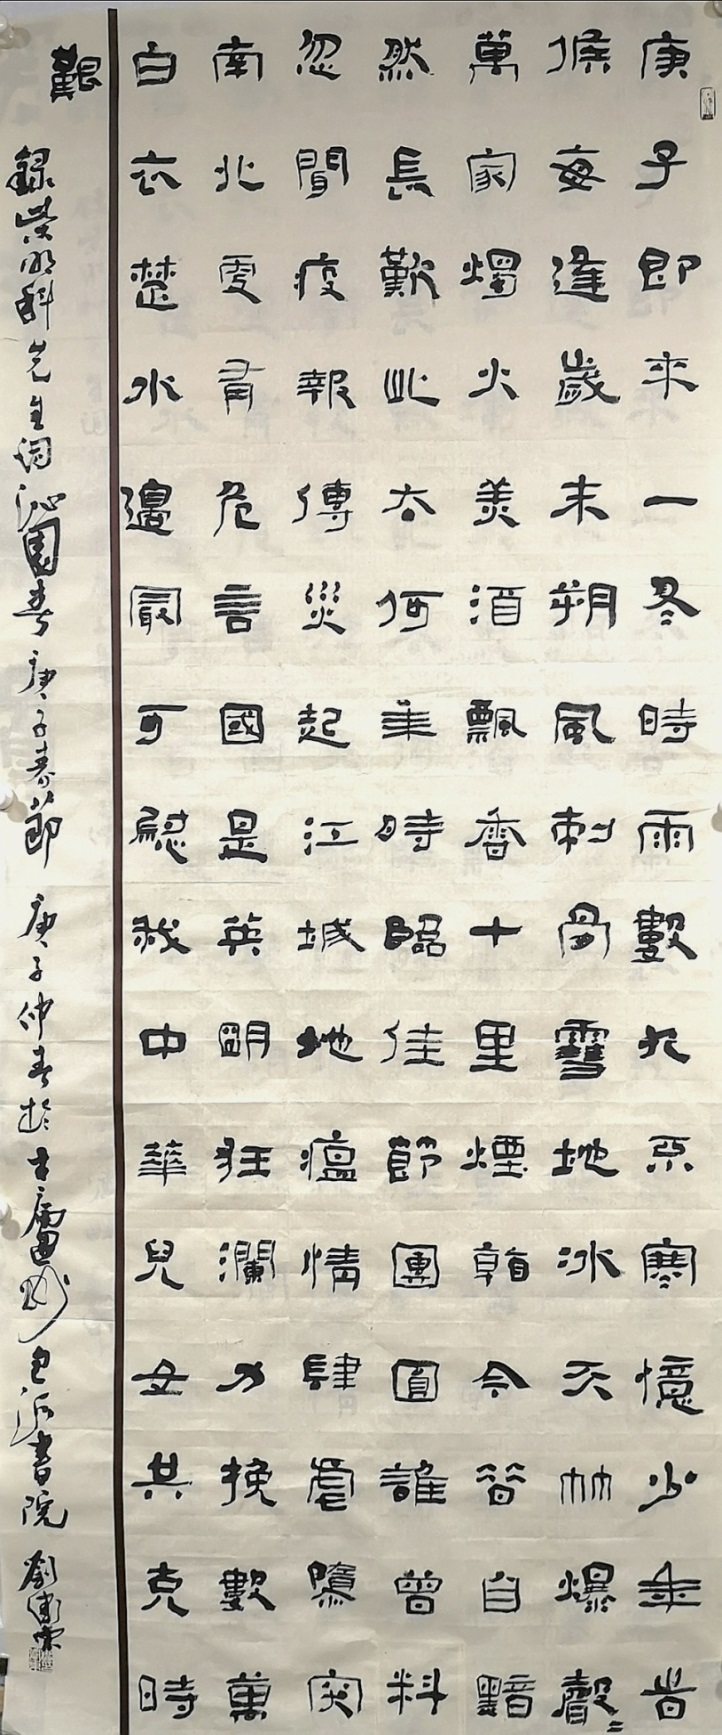 庚子即來一冬時雨數九亦寒憶少年旹
候每逢歲末朔風刺骨雪地冰天竹爆聲々
萬家燭火美酒飄香十里煙今昔自黯
然長歎此去何年時臨佳節團圓誰曾料
忽聞疫報傳災起江城地瘟情肆虐隳突
南北更有危言國是英明狂瀾力挽數萬
白衣楚水邊冣可慰我中華兒女共克時
艱
錄柴明科先生詞沁園春庚子春節 庚子仲春於古廬州包河書院 劉